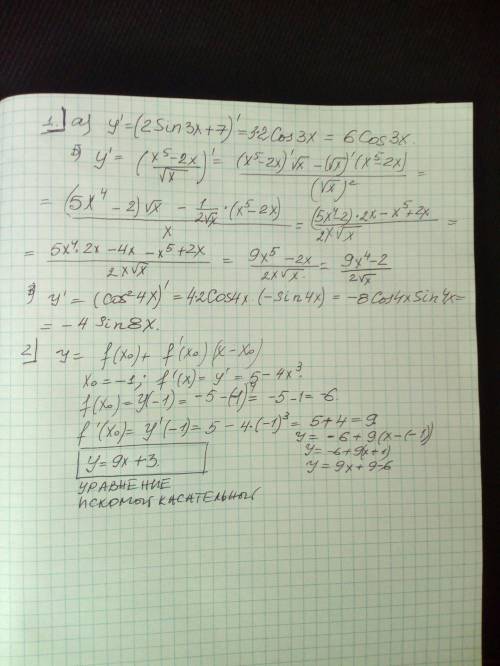 1. а) y' = (2Sin3x+7)' = 12Cos3x = 6Cos3x.
б) y' = (\frac{x^5-2x}{\sqrt{x}})' = \frac{(x^5-2x)'\sqrt{x} - (\sqrt{x})'(x^5-2x)}{(\sqrt{x})^2} =
= \frac{(5x^4-2)\sqrt{x} - \frac{1}{2\sqrt{x}}·(x^5-2x)}{x} = \frac{(5x^4-2)·2x - x^5+2x}{2x\sqrt{x}} =
= \frac{5x^4·2x - 4x - x^5+2x}{2x\sqrt{x}} = \frac{9x^5-2x}{2x\sqrt{x}} = \frac{9x^4-2}{2\sqrt{x}}
в) y' = (cos²4x)' = 42Cos4x (-Sin4x) = -8Cos4xSin4x =
= -4Sin8x.
2) y = f(x₀) + f'(x₀)(x-x₀)
x₀ = -1; f'(x) = y' = 5-4x³.
f(x₀) = y(-1) = -5-(-1)⁴ = -5-1 = -6.
f'(x₀) = y'(-1) = 5-4·(-1)³ = 5+4 = 9
y = -6+9(x-(-1))
y = -6+9(x+1)
y = 9x+9-6
y = 9x+3.
УРАВНЕНИЕ
ИСКОМОЙ КАСАТЕЛЬНОЙ